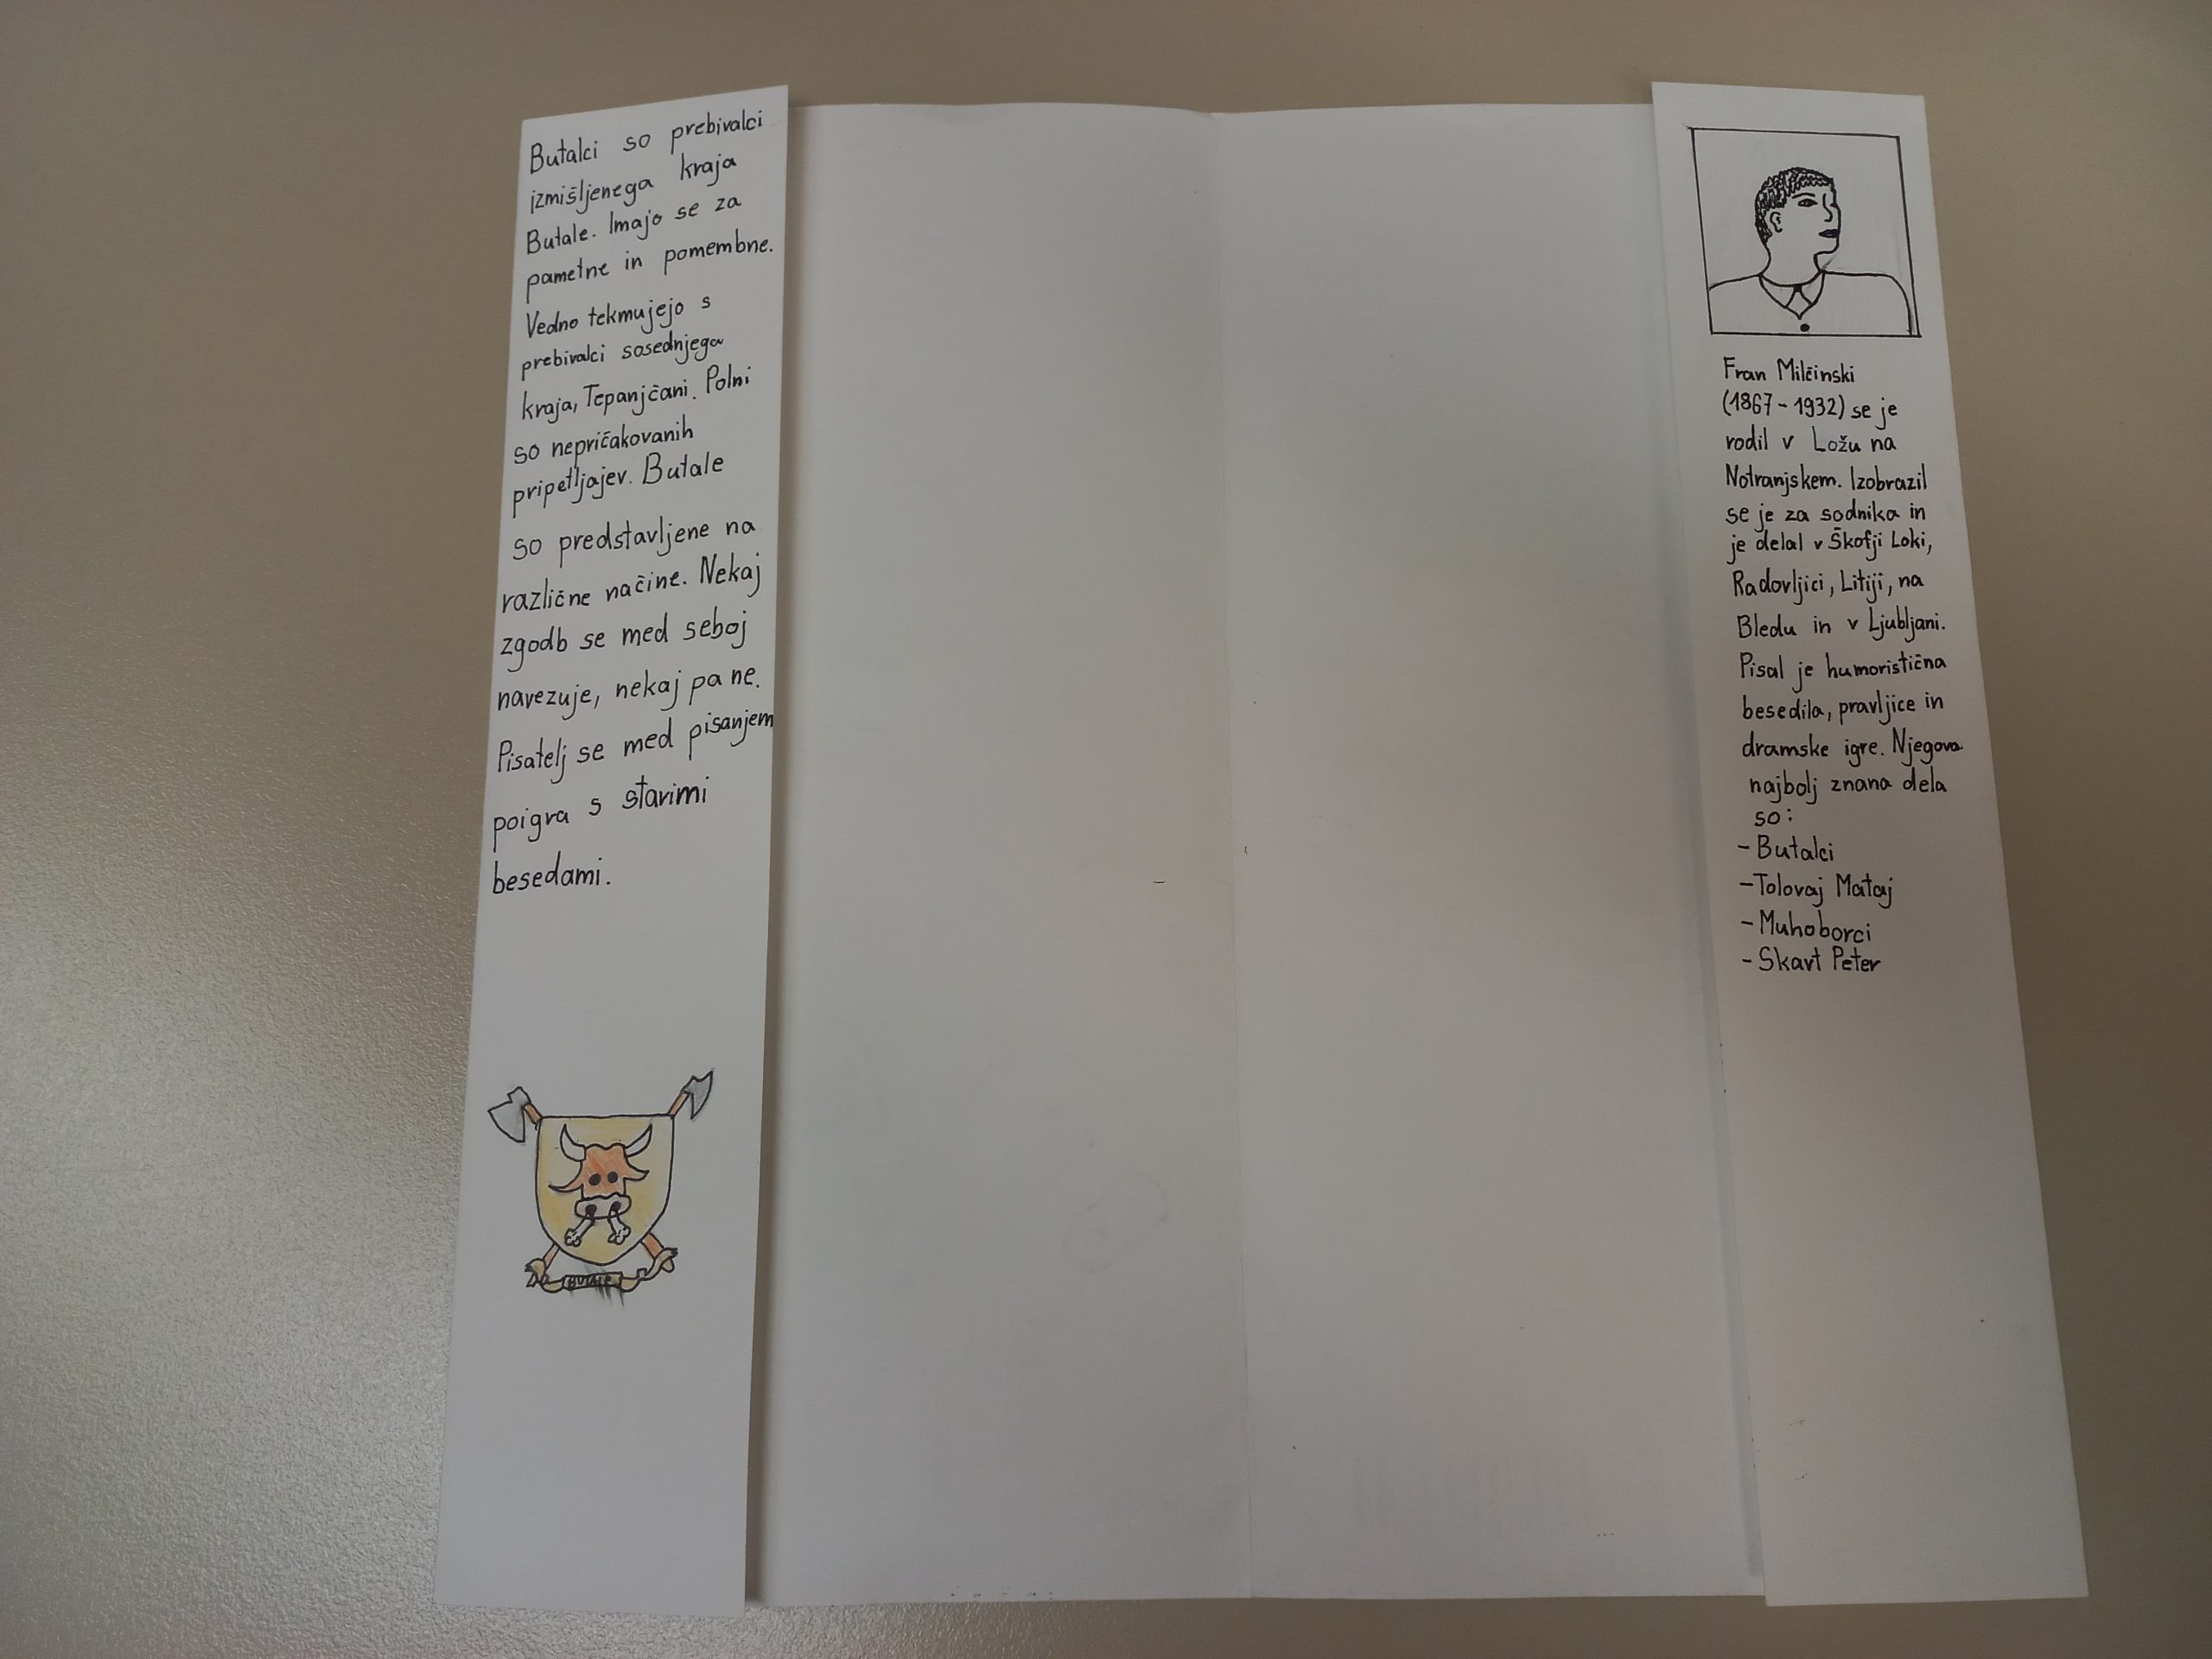 Butalci so prebivalci
izmišljenega kraja
Butale. Imajo se za
pametne in pomembne.
Vedno tekmujejo s
prebivalci sosednjega
kraja, Tepanjčani. Polni
so nepričakovanih
pripetljajev. Butale
so predstavljene na
različne načine. Nekaj
zgodb se med seboj
navezuje, nekaj pa ne.
Pisatelj se med pisanjem
poigra s starimi
besedami.
BUTALE
Fran Milčinski
(1867 - 1932) se je
rodil v Ložu na
Notranjskem. Izobrazil
se je za sodnika in
je delal v Škofji Loki,
Radovljici, Litiji, na
Bledu in v Ljubljani.
Pisal je humoristična
besedila, pravljice in
dramske igre. Njegova
najbolj znana dela
so:
- Butalci
- Tolovaj Mataj
- Muhoborci
- Skavt Peter